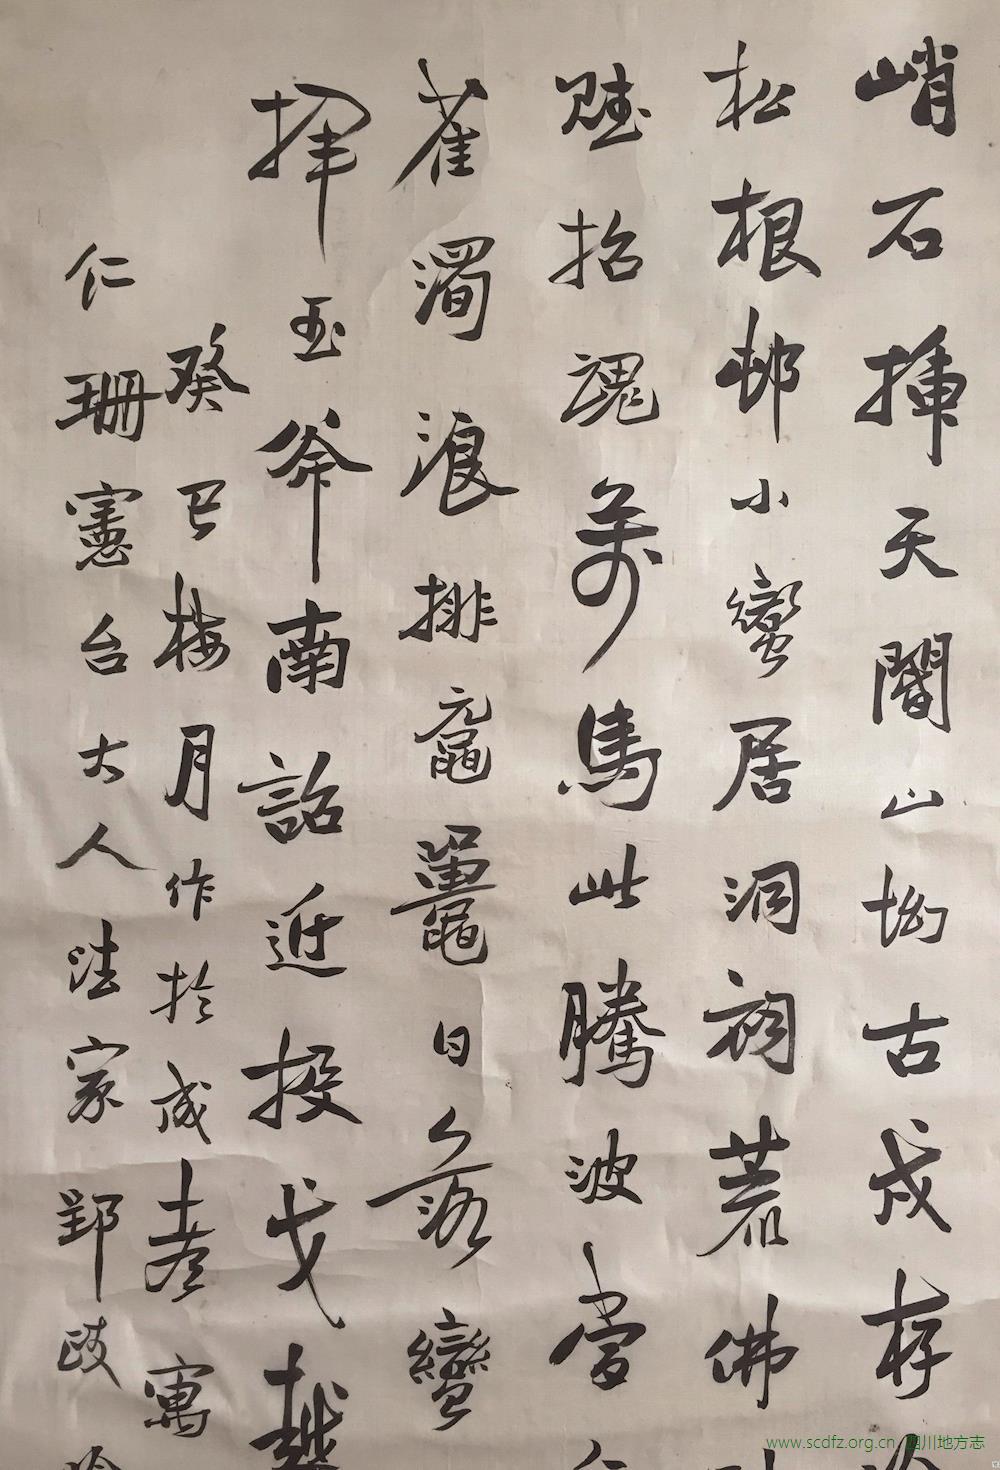 峭石撑天關山坳古戍存
松根邨小蠻居洞祠荒佛
賦招魂萬馬此騰波當
雀濁浪排黿鼉日落蠻
揮玉斧南詔近投戈越
癸巳梅月作於成彥寓
仁珊憲台大人法家郢政
www.scdfz.org.cn 四川地方志